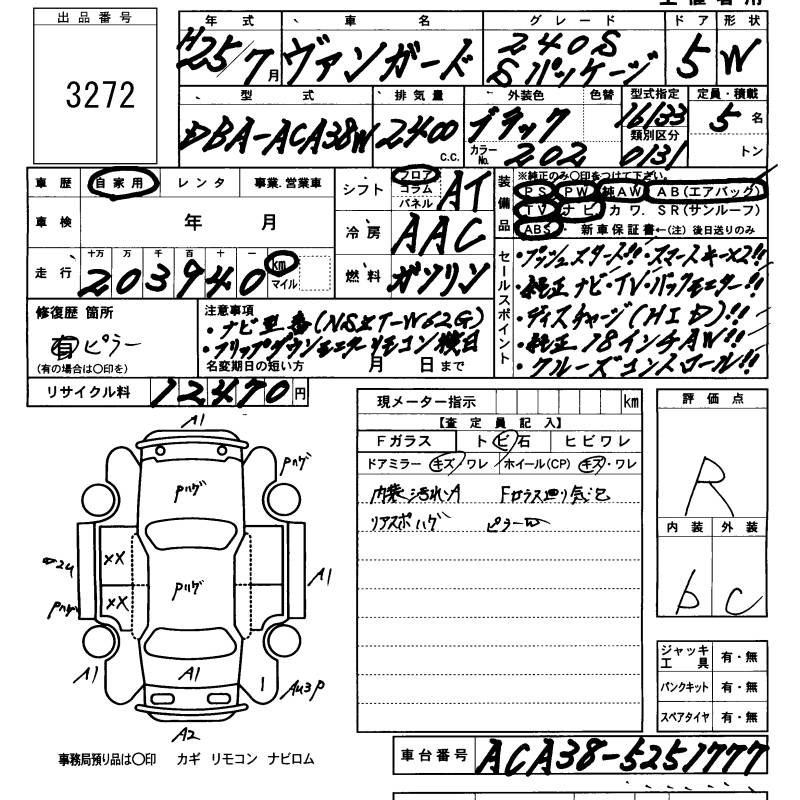 出品番号
3272
年式 車名 グレード ドア 形状
H25/7月 ヴァンガード 240S Sパッケージ 5 W
型式 排気量 外装色 色替 型式指定 定員・積載
DBA-ACA38W 2400 C.C. ブラック 16133 5名
カラーNo. 202 類別区分 0131 トン
車歴 自家用 レンタ 事業.営業車
シフト フロア コラム パネル AT
車検 年 月
冷房 AAC
走行 十万 万 千 百 十 一
203940 km マイル
燃料 ガソリン
装備品 ※純正のみ○印をつけて下さい。
PS PW 純AW AB(エアバック)
TV ナビ カワ. SR(サンルーフ)
ABS ・ 新車保証書←(注) 後日送りのみ
セールスポイント
・プッシュスタート!!・スマートキー×2!!
・純正ナビ・TV・バックモニター!!
・ディスチャージ(HID)!!
・純正18インチAW!!
・クルーズコントロール!!
修復歴 箇所
有 ピラー
(有の場合は○印を)
注意事項
・ナビ型番(NSZT-W62G)
・フリップダウンモニターリモコン後日
名変期日の短い方 月 日まで
リサイクル料 12470円
現メーター指示 km
【査定員記入】
Fガラス トビ石 ヒビワレ
ドアミラー キズ/ワレ ホイール(CP) キズ・ワレ
内装汚れシA Fガラス廻り気泡
リアスポハゲ ピラーW
評価点
R
内装 外装
b C
ジャッキ工具 有・無
パンクキット 有・無
スペアタイヤ 有・無
A1
Pハゲ
Pハゲ
XX
XX
Pハゲ
A1
A1
A1
A2
事務局預り品は○印 カギ リモコン ナビロム
車台番号 ACA38-5251777